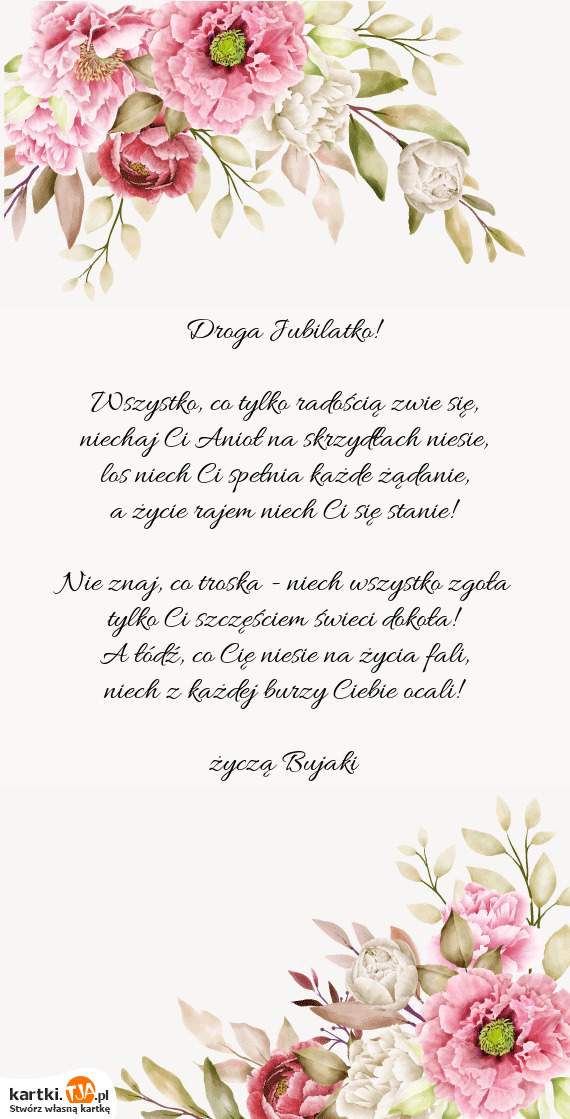 Droga Jubilatko!
Wszystko, co tylko radością zwie się,
niechaj Ci Anioł na skrzydłach niesie,
los niech Ci spełnia każde żądanie,
a życie rajem niech Ci się stanie!
Nie znaj, co troska - niech wszystko zgoła
tylko Ci szczęściem świeci dokoła!
A łódź, co Cię niesie na życia fali,
niech z każdej burzy Ciebie ocali!
życzą Bujaki
kartki.TJA.pl
Stwórz własną kartkę